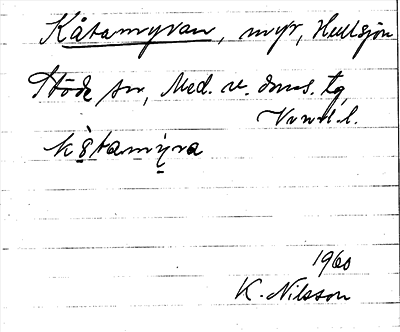 Kåtamyran, myr, Hullsjön
Stöde sn, Med. v. doms. tg,
kåtamyra
1960
K. Nilsson